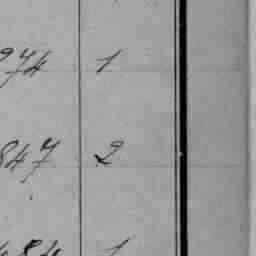 974 1
847 2
484 1